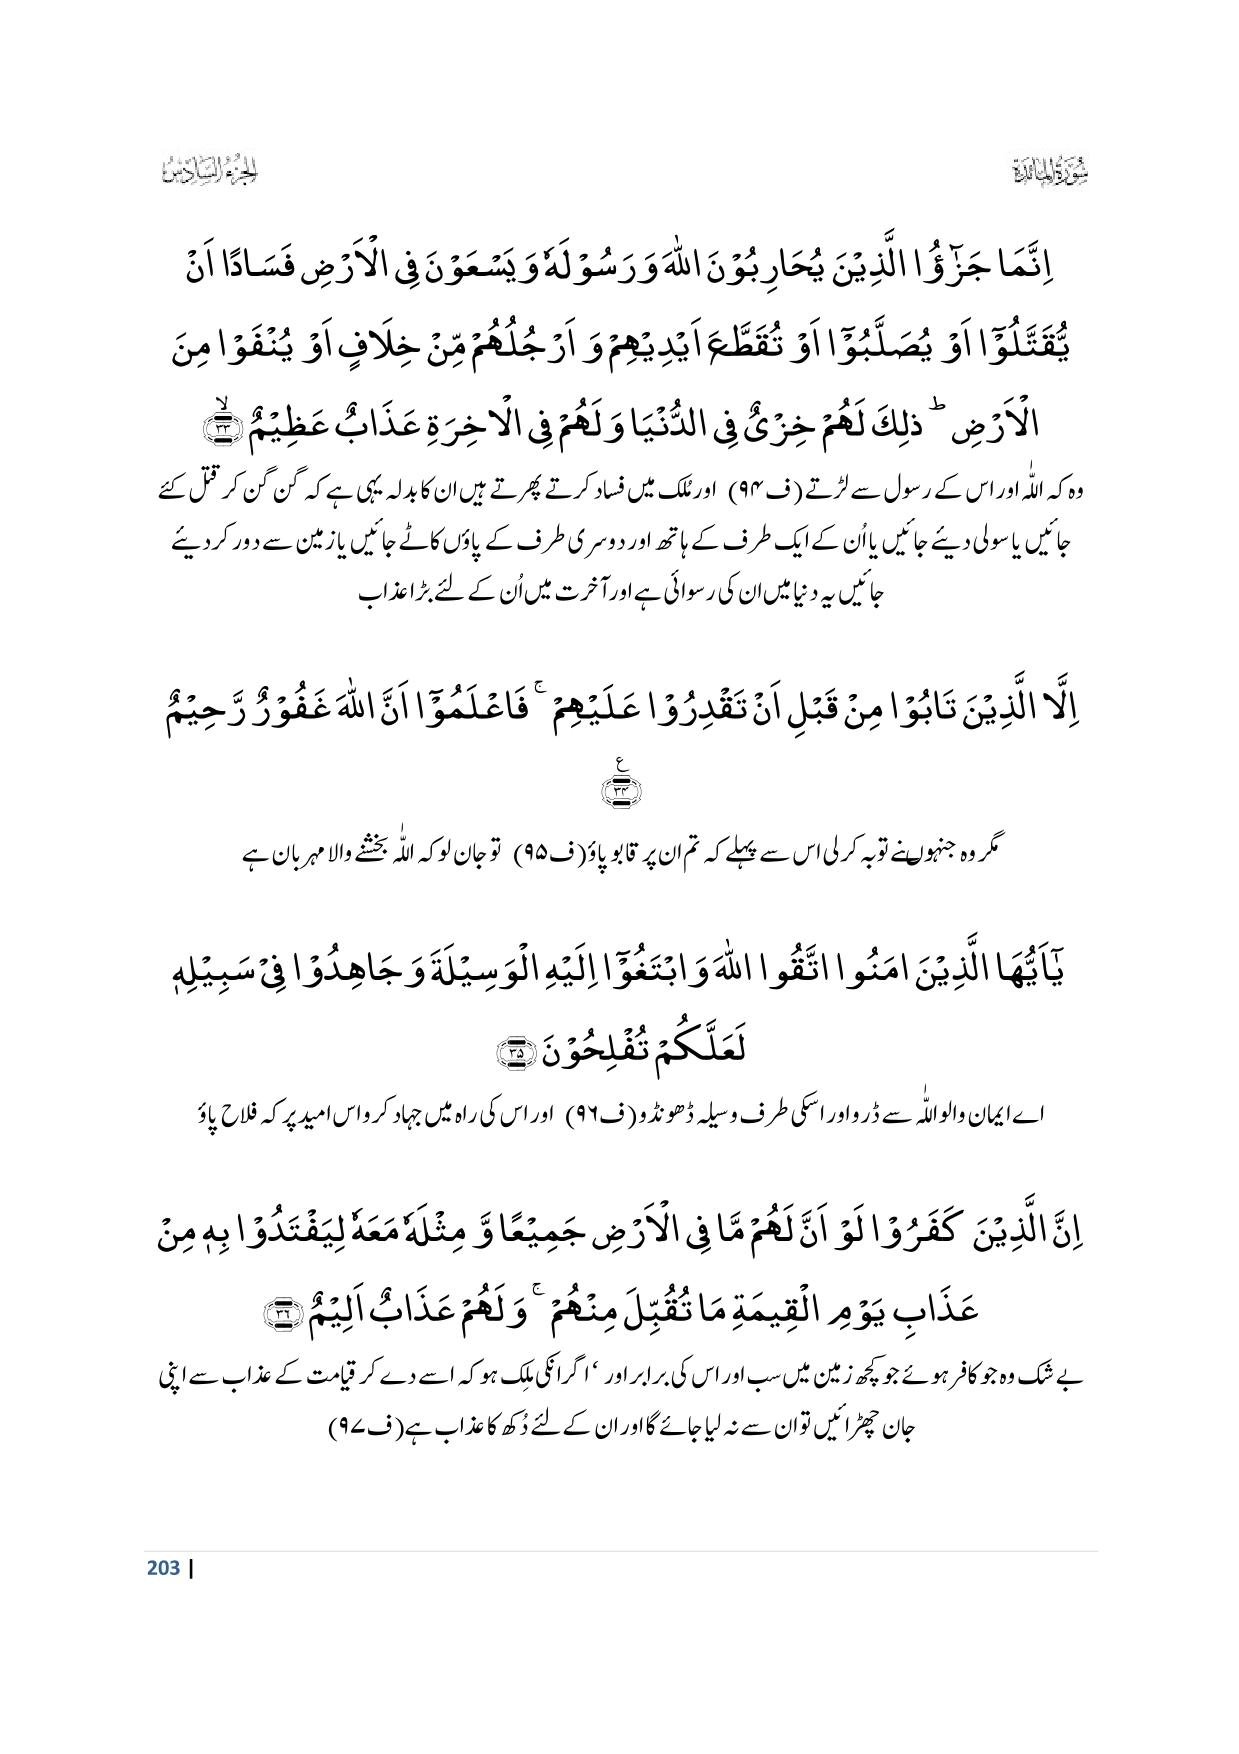 سُوْرَةُ الْمَائِدَة
الجزء السَّادِسُ
اِنَّمَا جَزٰٓؤُا الَّذِيْنَ يُحَارِبُوْنَ اللّٰهَ وَ رَسُوْلَهٗ وَ يَسْعَوْنَ فِى الْاَرْضِ فَسَادًا اَنْ
يُّقَتَّلُوْۤا اَوْ يُصَلَّبُوْۤا اَوْ تُقَطَّعَ اَيْدِيْهِمْ وَ اَرْجُلُهُمْ مِّنْ خِلَافٍ اَوْ يُنْفَوْا مِنَ
الْاَرْضِ ؕ ذٰلِكَ لَهُمْ خِزْیٌ فِى الدُّنْيَا وَ لَهُمْ فِى الْاٰخِرَةِ عَذَابٌ عَظِيْمٌ ۙ﴿۳۳﴾
وہ کہ اللّٰہ اور اس کے رسول سے لڑتے (ف۹۴) اور مُلک میں فساد کرتے پھرتے ہیں ان کا بدلہ یہی ہے کہ گن گن کر قتل کئے
جائیں یا سولی دیئے جائیں یا اُن کے ایک طرف کے ہاتھ اور دوسری طرف کے پاؤں کاٹے جائیں یا زمین سے دور کر دیئے
جائیں یہ دنیا میں ان کی رسوائی ہے اور آخرت میں اُن کے لئے بڑا عذاب
اِلَّا الَّذِيْنَ تَابُوْا مِنْ قَبْلِ اَنْ تَقْدِرُوْا عَلَيْهِمْ ۚ فَاعْلَمُوْۤا اَنَّ اللّٰهَ غَفُوْرٌ رَّحِيْمٌ
﴿۳۴﴾ ع
مگر وہ جنہوں نے توبہ کر لی اس سے پہلے کہ تم ان پر قابو پاؤ (ف۹۵) تو جان لو کہ اللّٰہ بخشنے والا مہربان ہے
يٰۤاَيُّهَا الَّذِيْنَ اٰمَنُوا اتَّقُوا اللّٰهَ وَ ابْتَغُوْۤا اِلَيْهِ الْوَسِيْلَةَ وَ جَاهِدُوْا فِىْ سَبِيْلِهٖ
لَعَلَّكُمْ تُفْلِحُوْنَ ﴿۳۵﴾
اے ایمان والو اللّٰہ سے ڈرو اور اسکی طرف وسیلہ ڈھونڈو (ف۹۶) اور اس کی راہ میں جہاد کرو اس امید پر کہ فلاح پاؤ
اِنَّ الَّذِيْنَ كَفَرُوْا لَوْ اَنَّ لَهُمْ مَّا فِى الْاَرْضِ جَمِيْعًا وَّ مِثْلَهٗ مَعَهٗ لِيَفْتَدُوْا بِهٖ مِنْ
عَذَابِ يَوْمِ الْقِيٰمَةِ مَا تُقُبِّلَ مِنْهُمْ ۚ وَ لَهُمْ عَذَابٌ اَلِيْمٌ ﴿۳۶﴾
بے شک وہ جو کافر ہوئے جو کچھ زمین میں سب اور اس کی برابر اور ‘ اگر انکی مِلک ہو کہ اسے دے کر قیامت کے عذاب سے اپنی
جان چھڑائیں تو ان سے نہ لیا جائے گا اور ان کے لئے دُکھ کا عذاب ہے (ف۹۷)
203 |